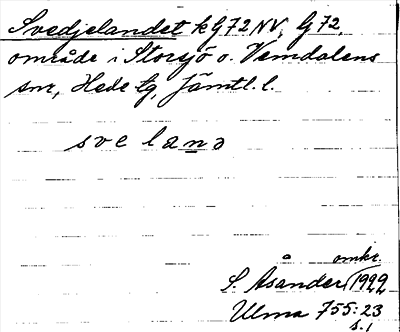 Svedjelandet k G72 NV, G 72,
område i Storsjö o. Vemdalens
snr, Hede tg, Jämtl. l.
sve lana
omkr.
S. Åsander 1922
Ulma 755:23
s. 1